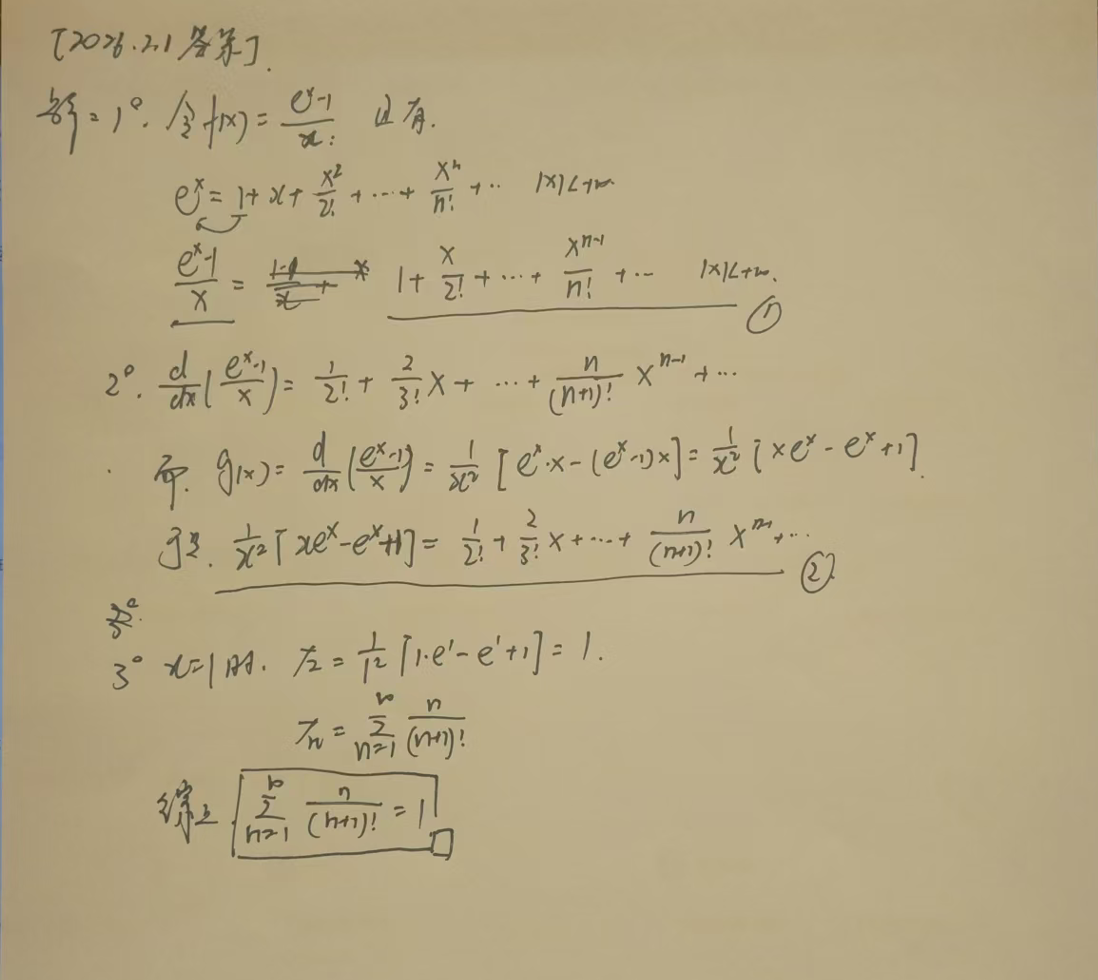 [2026.2.1 答案].
解: 1°. 令 f(x) = (e^x-1)/x. 且有.
e^x = 1 + x + x^2/2! + ... + x^n/n! + ... |x|<+∞
(e^x-1)/x = 1 + x/2! + ... + x^(n-1)/n! + ... |x|<+∞. ①
2°. d/dx((e^x-1)/x) = 1/2! + 2/3! x + ... + n/(n+1)! x^(n-1) + ...
而. g(x) = d/dx((e^x-1)/x) = 1/x^2 [e^x·x-(e^x-1)x] = 1/x^2 [xe^x-e^x+1].
1/x^2 [xe^x-e^x+1] = 1/2! + 2/3! x + ... + n/(n+1)! x^(n-1) + ... ②
3° x=1时. 左 = 1/1^2 [1·e^1-e^1+1] = 1.
右 = ∑_(n=1)^∞ n/(n+1)!
综上 ∑_(n=1)^∞ n/(n+1)! = 1